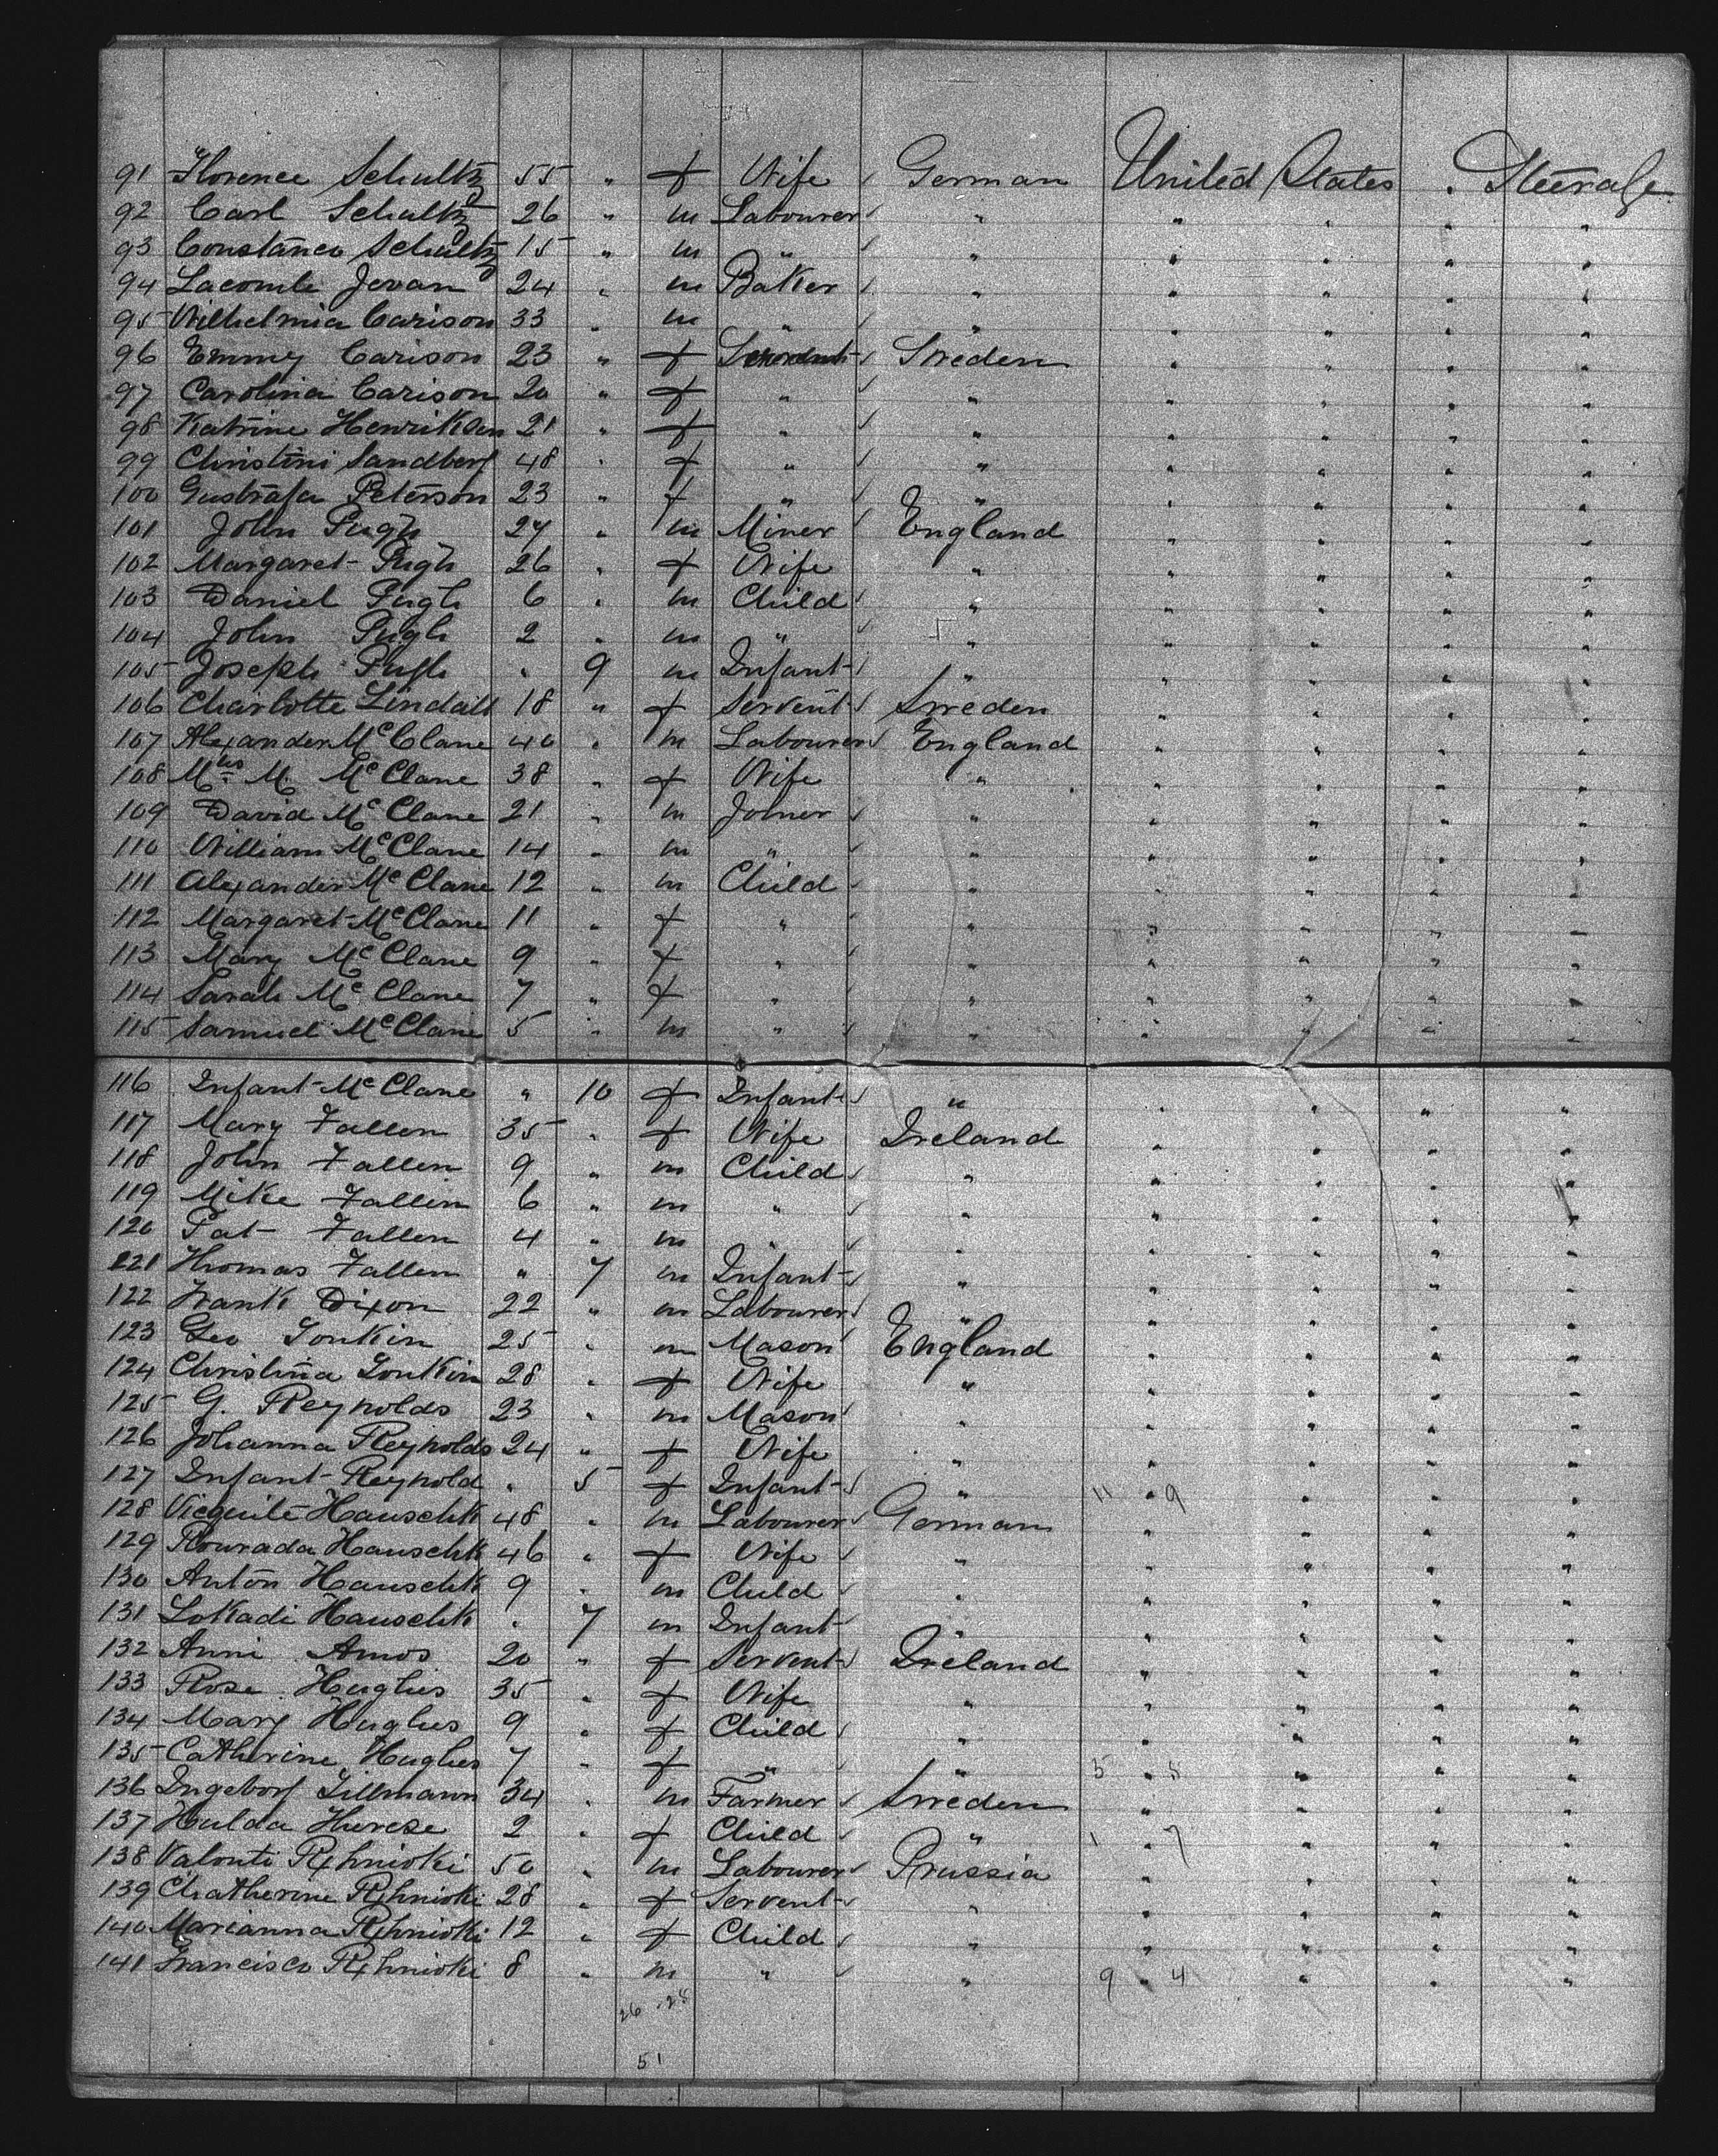 91 Florence Schultz 55 " f Wife German United States . Steerage
92 Carl Schultz 26 " m Labourer " " " " "
93 Constance Schultz 15 " m " " " " " "
94 Lacomb Jevan 24 " m Baker " " " " "
95 Wilhelmia Carison 33 " m " " " " " "
96 Emmy Carison 23 " f Servent Sweden " " " "
97 Carolina Carison 20 " f " " " " " "
98 Katrine Henriksen 21 " f " " " " " "
99 Christini Sandberg 48 " f " " " " " "
100 Gustrafa Peterson 23 " f " " " " " "
101 John Pugh 27 " m Miner England " " " "
102 Margaret Pugh 26 " f Wife " " " " "
103 Daniel Pugh 6 " m Child " " " " "
104 John Pugh 2 " m " " " " " "
105 Joseph Pugh " 9 m Infant " " " " "
106 Charlotte Lindall 18 " f Servent Sweden " " " "
107 Alexander McClane 40 " m Labourer England " " " "
108 Mrs M. McClane 38 " f Wife " " " " "
109 David McClane 21 " m Joiner " " " " "
110 William McClane 14 " m " " " " " "
111 Alexander McClane 12 " m Child " " " " "
112 Margaret McClane 11 " f " " " " " "
113 Mary McClane 9 " f " " " " " "
114 Sarah McClane 7 " f " " " " " "
115 Samuel McClane 5 " m " " " " " "
116 Infant McClane " 10 f Infant " " " " "
117 Mary Fallen 35 " f Wife Ireland " " " "
118 John Fallen 9 " m Child " " " " "
119 Mike Fallen 6 " m " " " " " "
120 Pat Fallen 4 " m " " " " " "
121 Thomas Fallen " 7 m Infant " " " " "
122 Frank Dixon 22 " m Labourer " " " " "
123 Geo Tonkin 25 " m Mason England " " " "
124 Christina Tonkin 28 " f Wife " " " " "
125 G. Reynolds 23 " m Mason " " " " "
126 Johanna Reynolds 24 " f Wife " " " " "
127 Infant Reynold " 5 f Infant " 11 " 9 " " "
128 Hauschk 48 " m Labourer German " " " "
129 Hauschk 46 " f Wife " " " " "
130 Anton Hauschk 9 " m Child " " " " "
131 Lokadi Hauschk " 7 m Infant " " " " "
132 Anni Amos 20 " f Servent Ireland " " " "
133 Rose Hughes 35 " f Wife " " " " "
134 Mary Hughes 9 " f Child " " " " "
135 Catherine Hughes 7 " f " " 5 " 5 " " "
136 Ingeborg Tillmann 34 " m Farmer Sweden " " " "
137 Hulda Therese 2 " f Child " 1 " 7 " " "
138 Valonti 50 " m Labourer Prussia " " " "
139 Chatherine 28 " f Servent " " " " "
140 Marianna 12 " f Child " " " " "
141 Francisco 8 " m " " 9 " 4 " " "
26 . 25
51